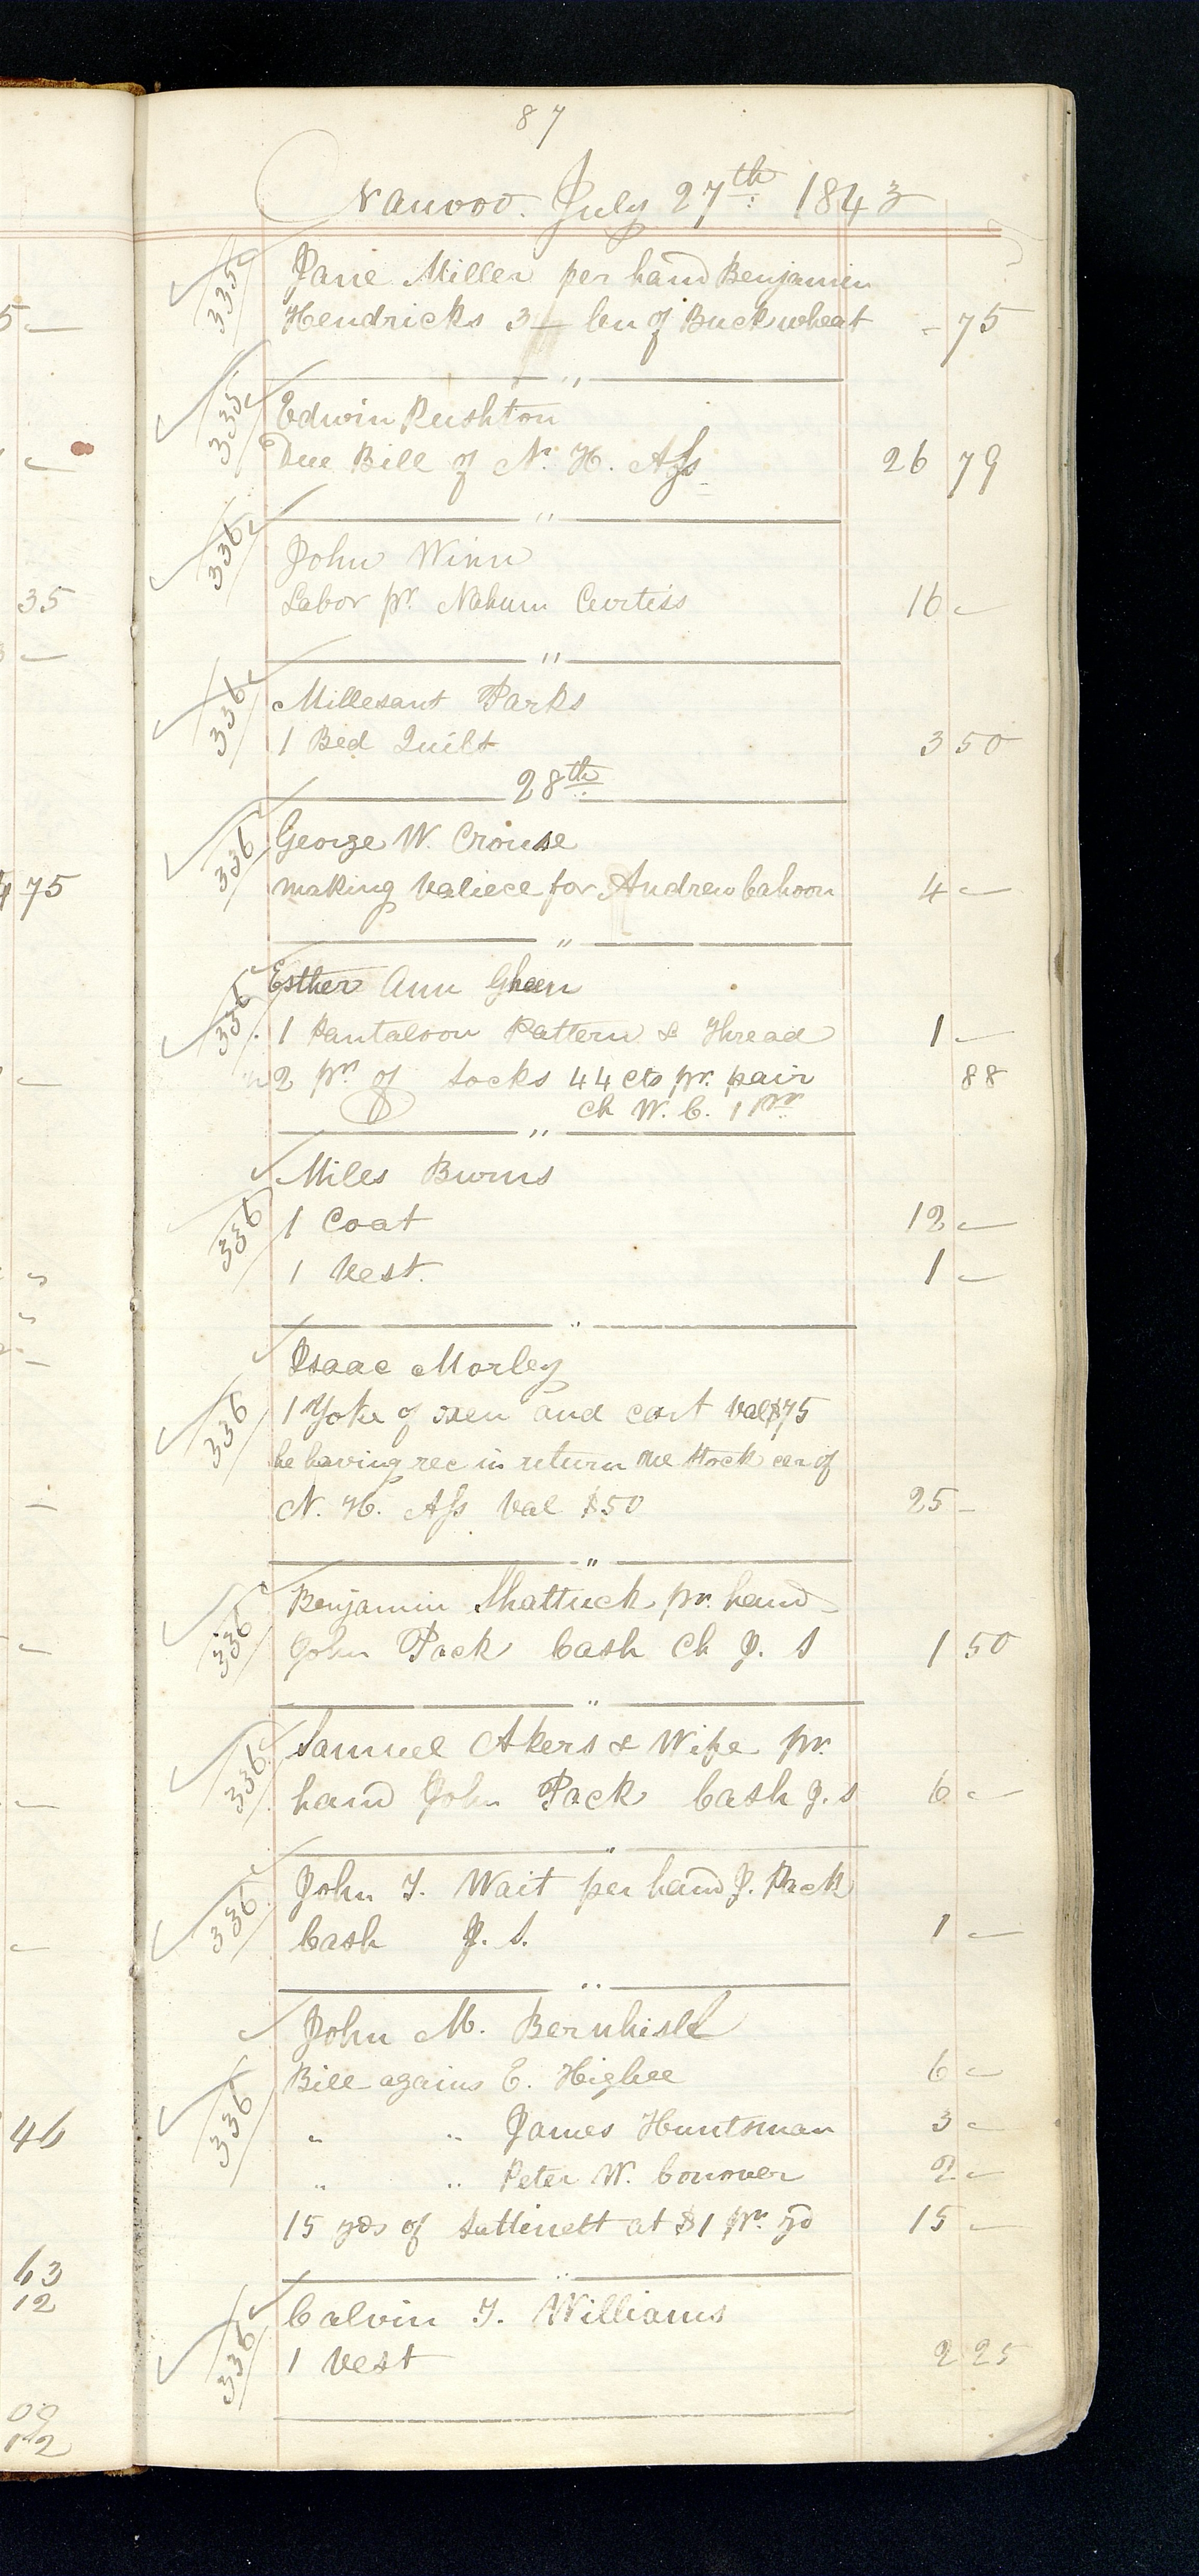 87
Nauvoo. July 27th 1843
335 Jane Miller per hand Benjamin
Hendricks 3 bu of Buckwheat - 75
"
335 Edwin Rushton
Due Bill of N. H. Ass 26 79
"
336 John Winn
Labor pr. Nahum Curtiss 16 -
"
336 Millesant Parks
1 Bed Quilt 3 50
28th
336 George W. Crouse
making valiece for Andrew Cahoon 4 -
"
336 Esther Ann Gheen
1 Pantaloon Pattern & Thread 1 -
2 pr. of socks 44 cts pr. pair 88
ch W. C. 1 pr
"
Miles Burns
336 1 Coat 12 -
1 Vest. 1 -
"
Isaac Morley
336 1 Yoke of oxen and cart Val $75
he having rec in return one stock cer of
N. H. Ass Val $50 25 -
"
Benjamin Shattuck pr. hand
336 John Pack Cash Ch J. S 1 50
"
Samuel Akers & Wife pr.
336 hand John Pack Cash J. S 6 -
"
John T. Wait per hand J. Pack
336 Cash J. S. 1 -
"
John M. Bernhisel
Bill agains E. Higbee 6 -
336 " " James Huntsman 3 -
" " Peter W. Conover 2 -
15 yds of Sattinett at $1 pr. yd 15 -
"
Calvin T. Williams
336 1 Vest 2 25
5 -
35
75
46
63
12
09
12